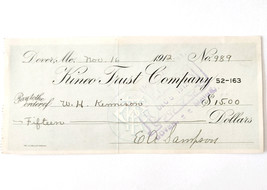 Dover, Me. Nov. 16 1912 No. 989
Kineo Trust Company 52-163
Pay to the order of W. H. Kennison $15.00
Fifteen Dollars
E A Sampson